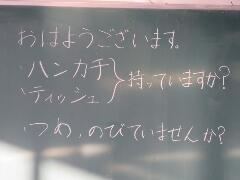 おはようございます。
・ハンカチ
・ティッシュ } 持っていますか?
・つめ、のびていませんか?